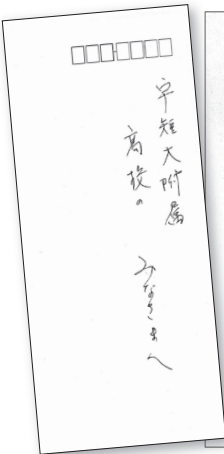 宇短大附属
高校の　みなさまへ